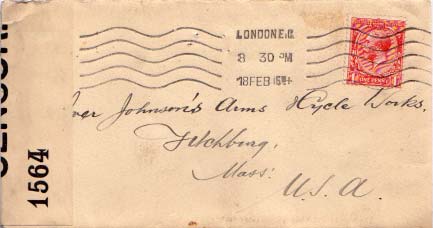 LONDON E.C.
8 30 PM
18 FEB 15
ver Johnson's Arms & Cycle Works.
Fitchburg,
Mass:
U.S.A.
1564
ONE PENNY